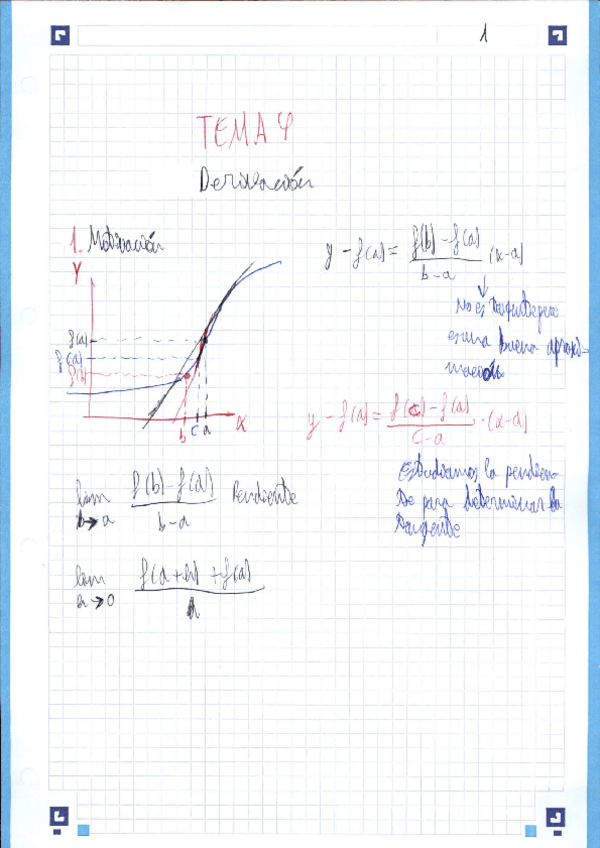 1
TEMA 4
Derivación
1. Motivación
Y
f(a)
f(c)
f(b)
b c a
X
y - f(a) = \frac{f(b) - f(a)}{b - a} · (x - a)
No es tangente pero
es una buena aproxi-
mación
y - f(a) = \frac{f(c) - f(a)}{c - a} · (x - a)
Estudiamos la pendien-
te para determinar la
tangente
lim b→a \frac{f(b) - f(a)}{b - a} Pendiente
lim h→0 \frac{f(a + h) + f(a)}{h}